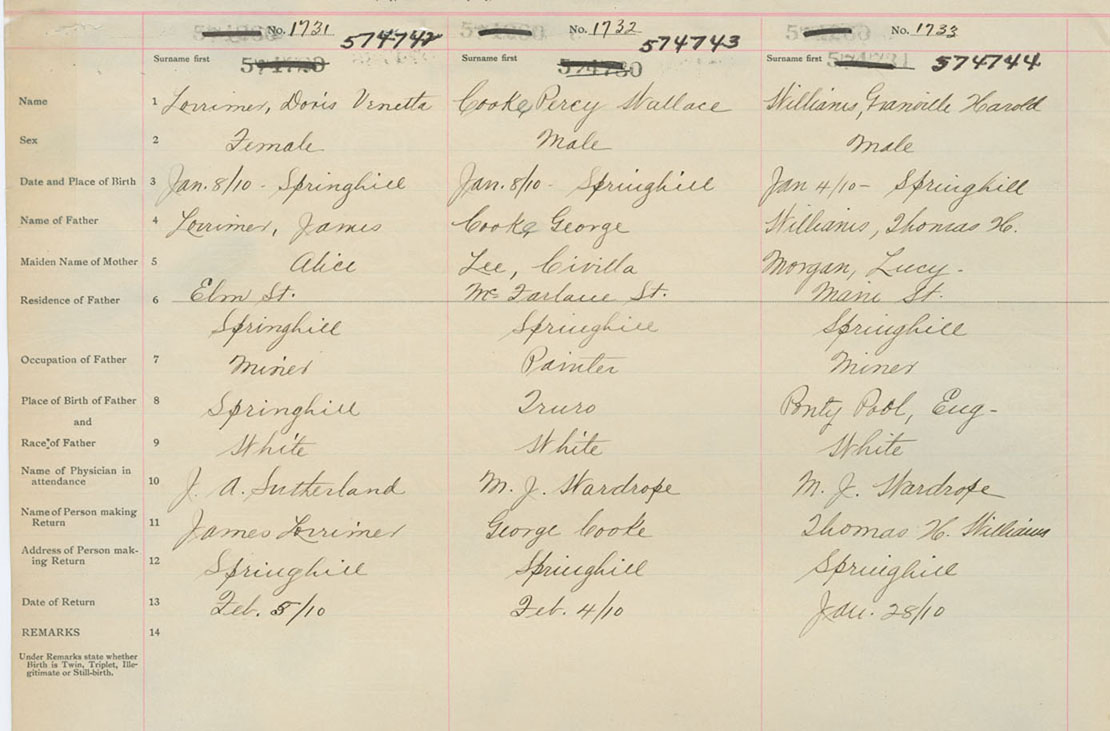 No. 1731 No. 1732 No. 1733
574742 574743 574744
Surname first Surname first Surname first
Name 1 Lorrimer, Doris Venetta Cooke Percy Wallace Williams, Granville Harold
Sex 2 Female Male Male
Date and Place of Birth 3 Jan. 8/10 - Springhill Jan. 8/10 - Springhill Jan 4/10 - Springhill
Name of Father 4 Lorrimer, James Cooke George Williams, Thomas H.
Maiden Name of Mother 5 Alice Lee, Civilla Morgan, Lucy.
Residence of Father 6 Elm St. McFarlane St. Main St.
Springhill Springhill Springhill
Occupation of Father 7 Miner Painter Miner
Place of Birth of Father 8 Springhill Truro Ponty Pool, Eng-
and
Race of Father 9 White White White
Name of Physician in
attendance 10 J. A. Sutherland M. J. Wardrope M. J. Wardrope
Name of Person making
Return 11 James Lorrimer George Cooke Thomas H. Williams
Address of Person mak-
ing Return 12 Springhill Springhill Springhill
Date of Return 13 Feb. 5/10 Feb. 4/10 Jan. 28/10
REMARKS 14
Under Remarks state whether
Birth is Twin, Triplet, Ille-
gitimate or Still-birth.